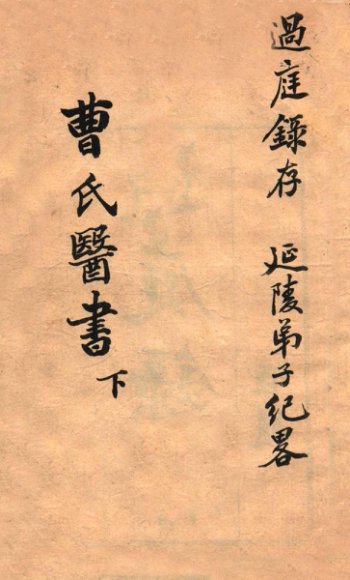 過庭錄存　延陵弟子紀畧
曹氏醫書下